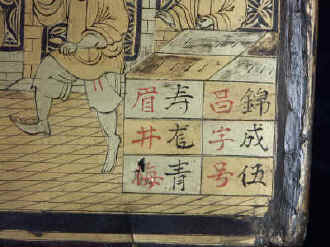 錦昌 寿眉
成字 尨井
伍号 青梅